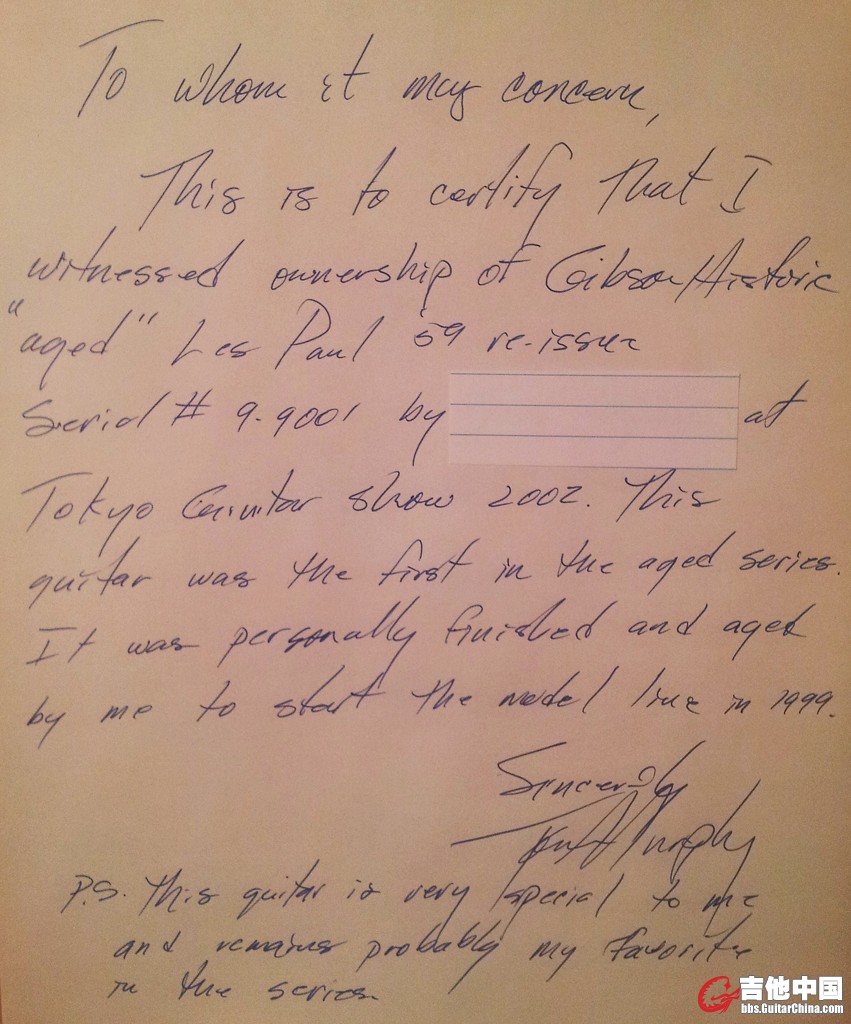 To whom it may concern,
This is to certify that I
witnessed ownership of Gibson/Historic
"aged" Les Paul '59 re-issue
Serial # 9-9001 by at
Tokyo Guitar Show 2002. This
guitar was the first in the aged series.
It was personally finished and aged
by me to start the model line in 1999.
Sincerely
Tom Murphy
P.S. This guitar is very special to me
and remains probably my favorite
in the series.
吉他中国
bbs.GuitarChina.com